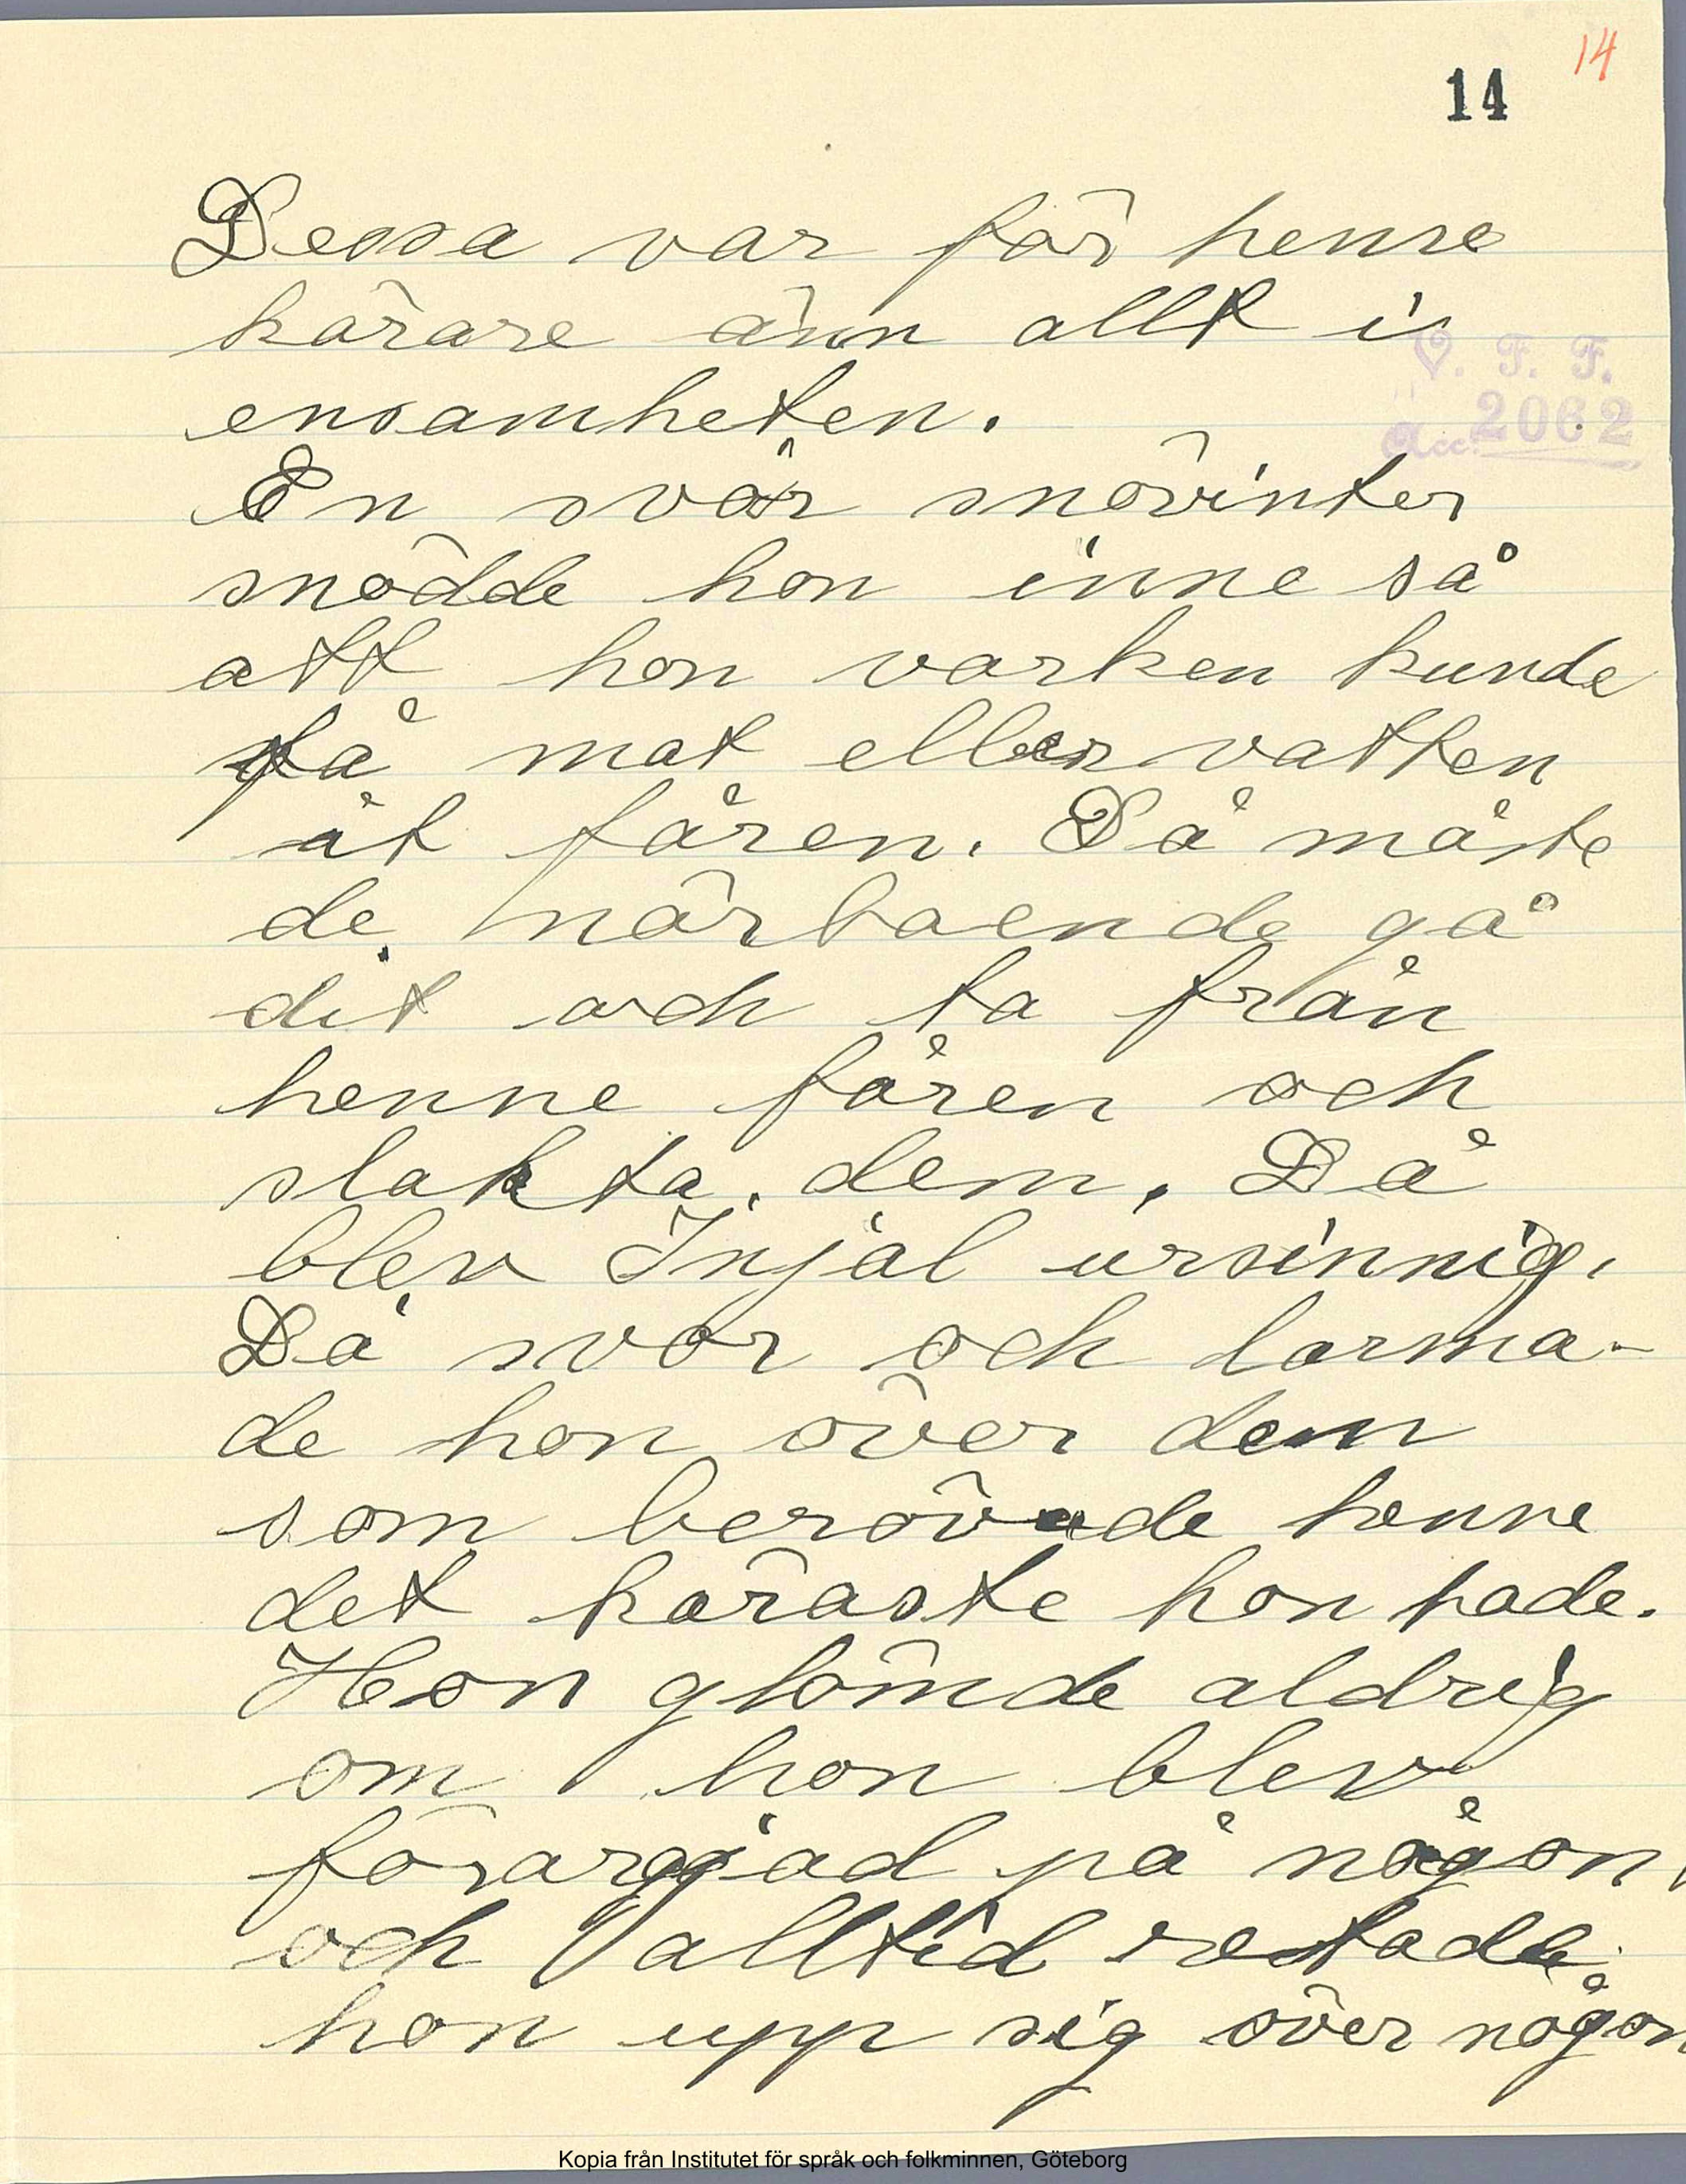 14
14
Dessa var för henne
kärare änn allt i
V. F. F.
ensamheten.
Acc. 2062
En svår snövinter
snödde hon inne så
att hon varken kunde
få mat eller vatten
åt fåren. Då måste
de närboende gå
dit och ta från
henne fåren och
slakta dem. Då
blev Injäl ursinnig.
Då svor och larma-
de hon över dem
som berövade henne
det käraste hon hade.
Hon glömde aldrig
om hon blev
förargjad på någon,
och alltid retade
hon upp sig över någon
Kopia från Institutet för språk och folkminnen, Göteborg